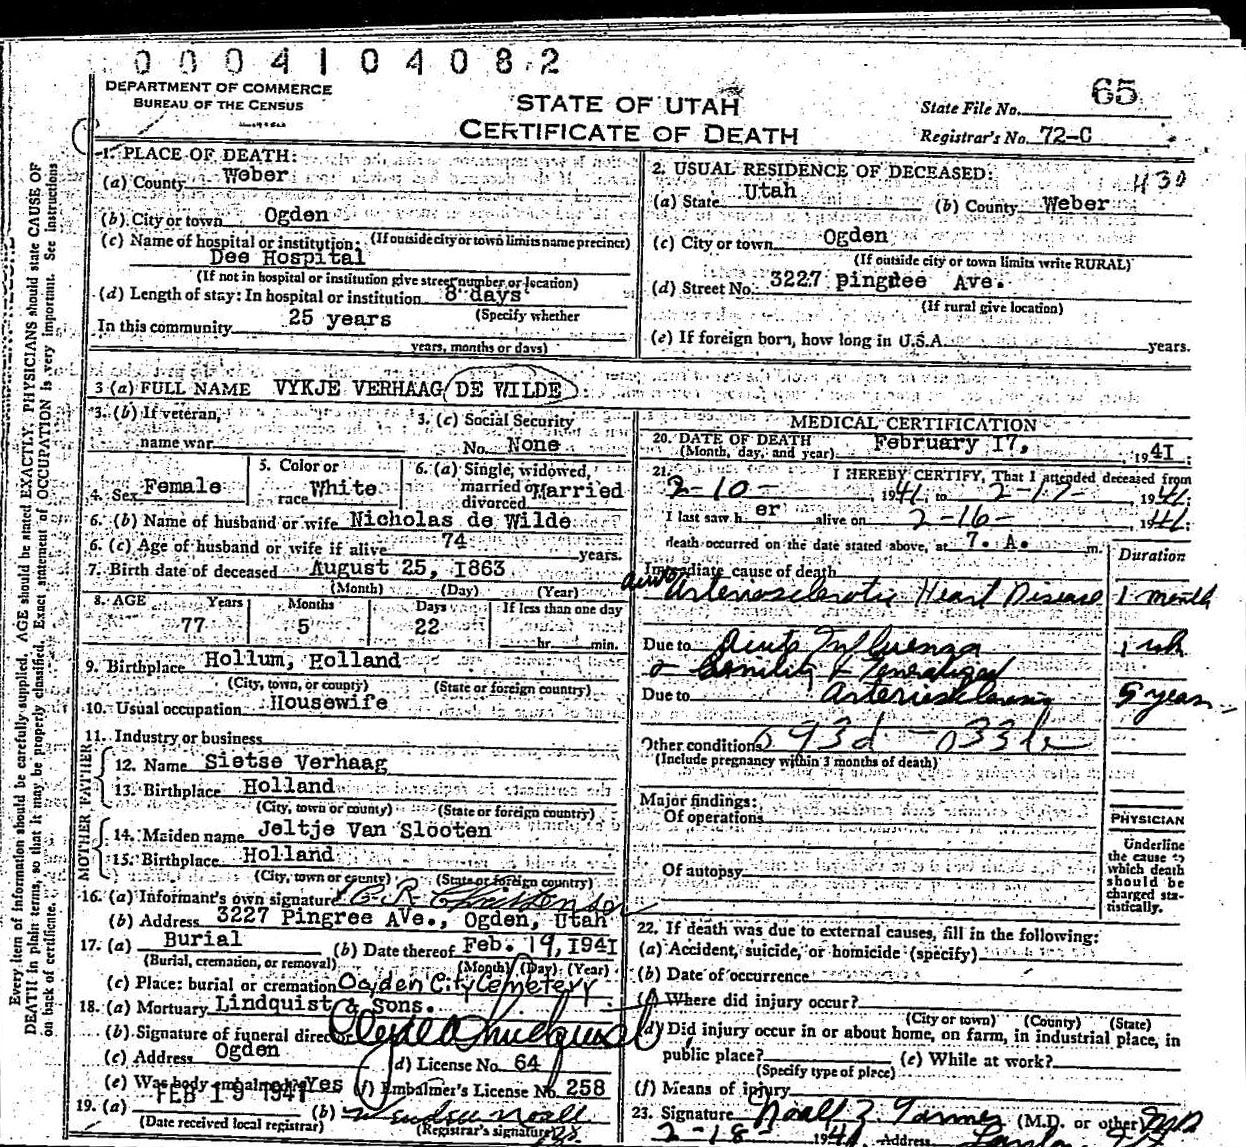 0004104082
DEPARTMENT OF COMMERCE
BUREAU OF THE CENSUS
STATE OF UTAH
CERTIFICATE OF DEATH
State File No. 65
Registrar's No. 72-C
Every item of information should be carefully supplied. AGE should be stated EXACTLY. PHYSICIANS should state CAUSE OF
DEATH in plain terms, so that it may be properly classified. Exact statement of OCCUPATION is very important. See instructions
on back of certificate.
1. PLACE OF DEATH:
(a) County Weber
(b) City or town Ogden
(If outside city or town limits name precinct)
(c) Name of hospital or institution:
Dee Hospital
(If not in hospital or institution give street number or location)
(d) Length of stay: In hospital or institution 8 days
(Specify whether
In this community 25 years
years, months or days)
2. USUAL RESIDENCE OF DECEASED:
430
(a) State Utah (b) County Weber
(c) City or town Ogden
(If outside city or town limits write RURAL)
(d) Street No. 3227 pingree Ave.
(If rural give location)
(e) If foreign born, how long in U.S.A. years.
3 (a) FULL NAME VYKJE VERHAAG DE WILDE
3. (b) If veteran,
name war
3. (c) Social Security
No. None
4. Sex Female
5. Color or
race White
6. (a) Single, widowed,
married or
divorced Married
6. (b) Name of husband or wife Nicholas de Wilde
6. (c) Age of husband or wife if alive 74 years.
7. Birth date of deceased August 25, 1863
(Month) (Day) (Year)
8. AGE Years Months Days If less than one day
77 5 22 hr. min.
9. Birthplace Hollum, Holland
(City, town, or county) (State or foreign country)
10. Usual occupation Housewife
11. Industry or business
FATHER
12. Name Sietse Verhaag
13. Birthplace Holland
(City, town or county) (State or foreign country)
MOTHER
14. Maiden name Jeltje Van Slooten
15. Birthplace Holland
(City, town or county) (State or foreign country)
16. (a) Informant's own signature C. R. Christensen
(b) Address 3227 Pingree AVe., Ogden, Utah
17. (a) Burial (b) Date thereof Feb. 19, 1941
(Burial, cremation, or removal) (Month) (Day) (Year)
(c) Place: burial or cremation Ogden City Cemetery
18. (a) Mortuary Lindquist & Sons.
(b) Signature of funeral director
(c) Address Ogden (d) License No. 64
(e) Was body embalmed? Yes (f) Embalmer's License No. 258
19. (a) FEB 19 1941 (b)
(Date received local registrar) (Registrar's signature)
MEDICAL CERTIFICATION
20. DATE OF DEATH February 17, 1941
(Month, day, and year)
21. I HEREBY CERTIFY, That I attended deceased from
2-10- 1941, to 2-17- 1941.
I last saw her alive on 2-16- 1941.
death occurred on the date stated above, at 7. A. m.
Duration
Immediate cause of death
Arteriosclerotic Heart Disease 1 month
Due to Acute Influenza 1 wk
& Senility & Generalized
Due to Arteriosclerosis 5 years
Other conditions 93d - 033b
(Include pregnancy within 3 months of death)
Major findings:
Of operations
Of autopsy
PHYSICIAN
Underline
the cause to
which death
should be
charged sta-
tistically.
22. If death was due to external causes, fill in the following:
(a) Accident, suicide, or homicide (specify)
(b) Date of occurrence
(c) Where did injury occur?
(City or town) (County) (State)
(d) Did injury occur in or about home, on farm, in industrial place, in
public place? (e) While at work?
(Specify type of place)
(f) Means of injury
23. Signature Noall Z. Tanner (M.D. or other) MD
2-18- 1941 Address